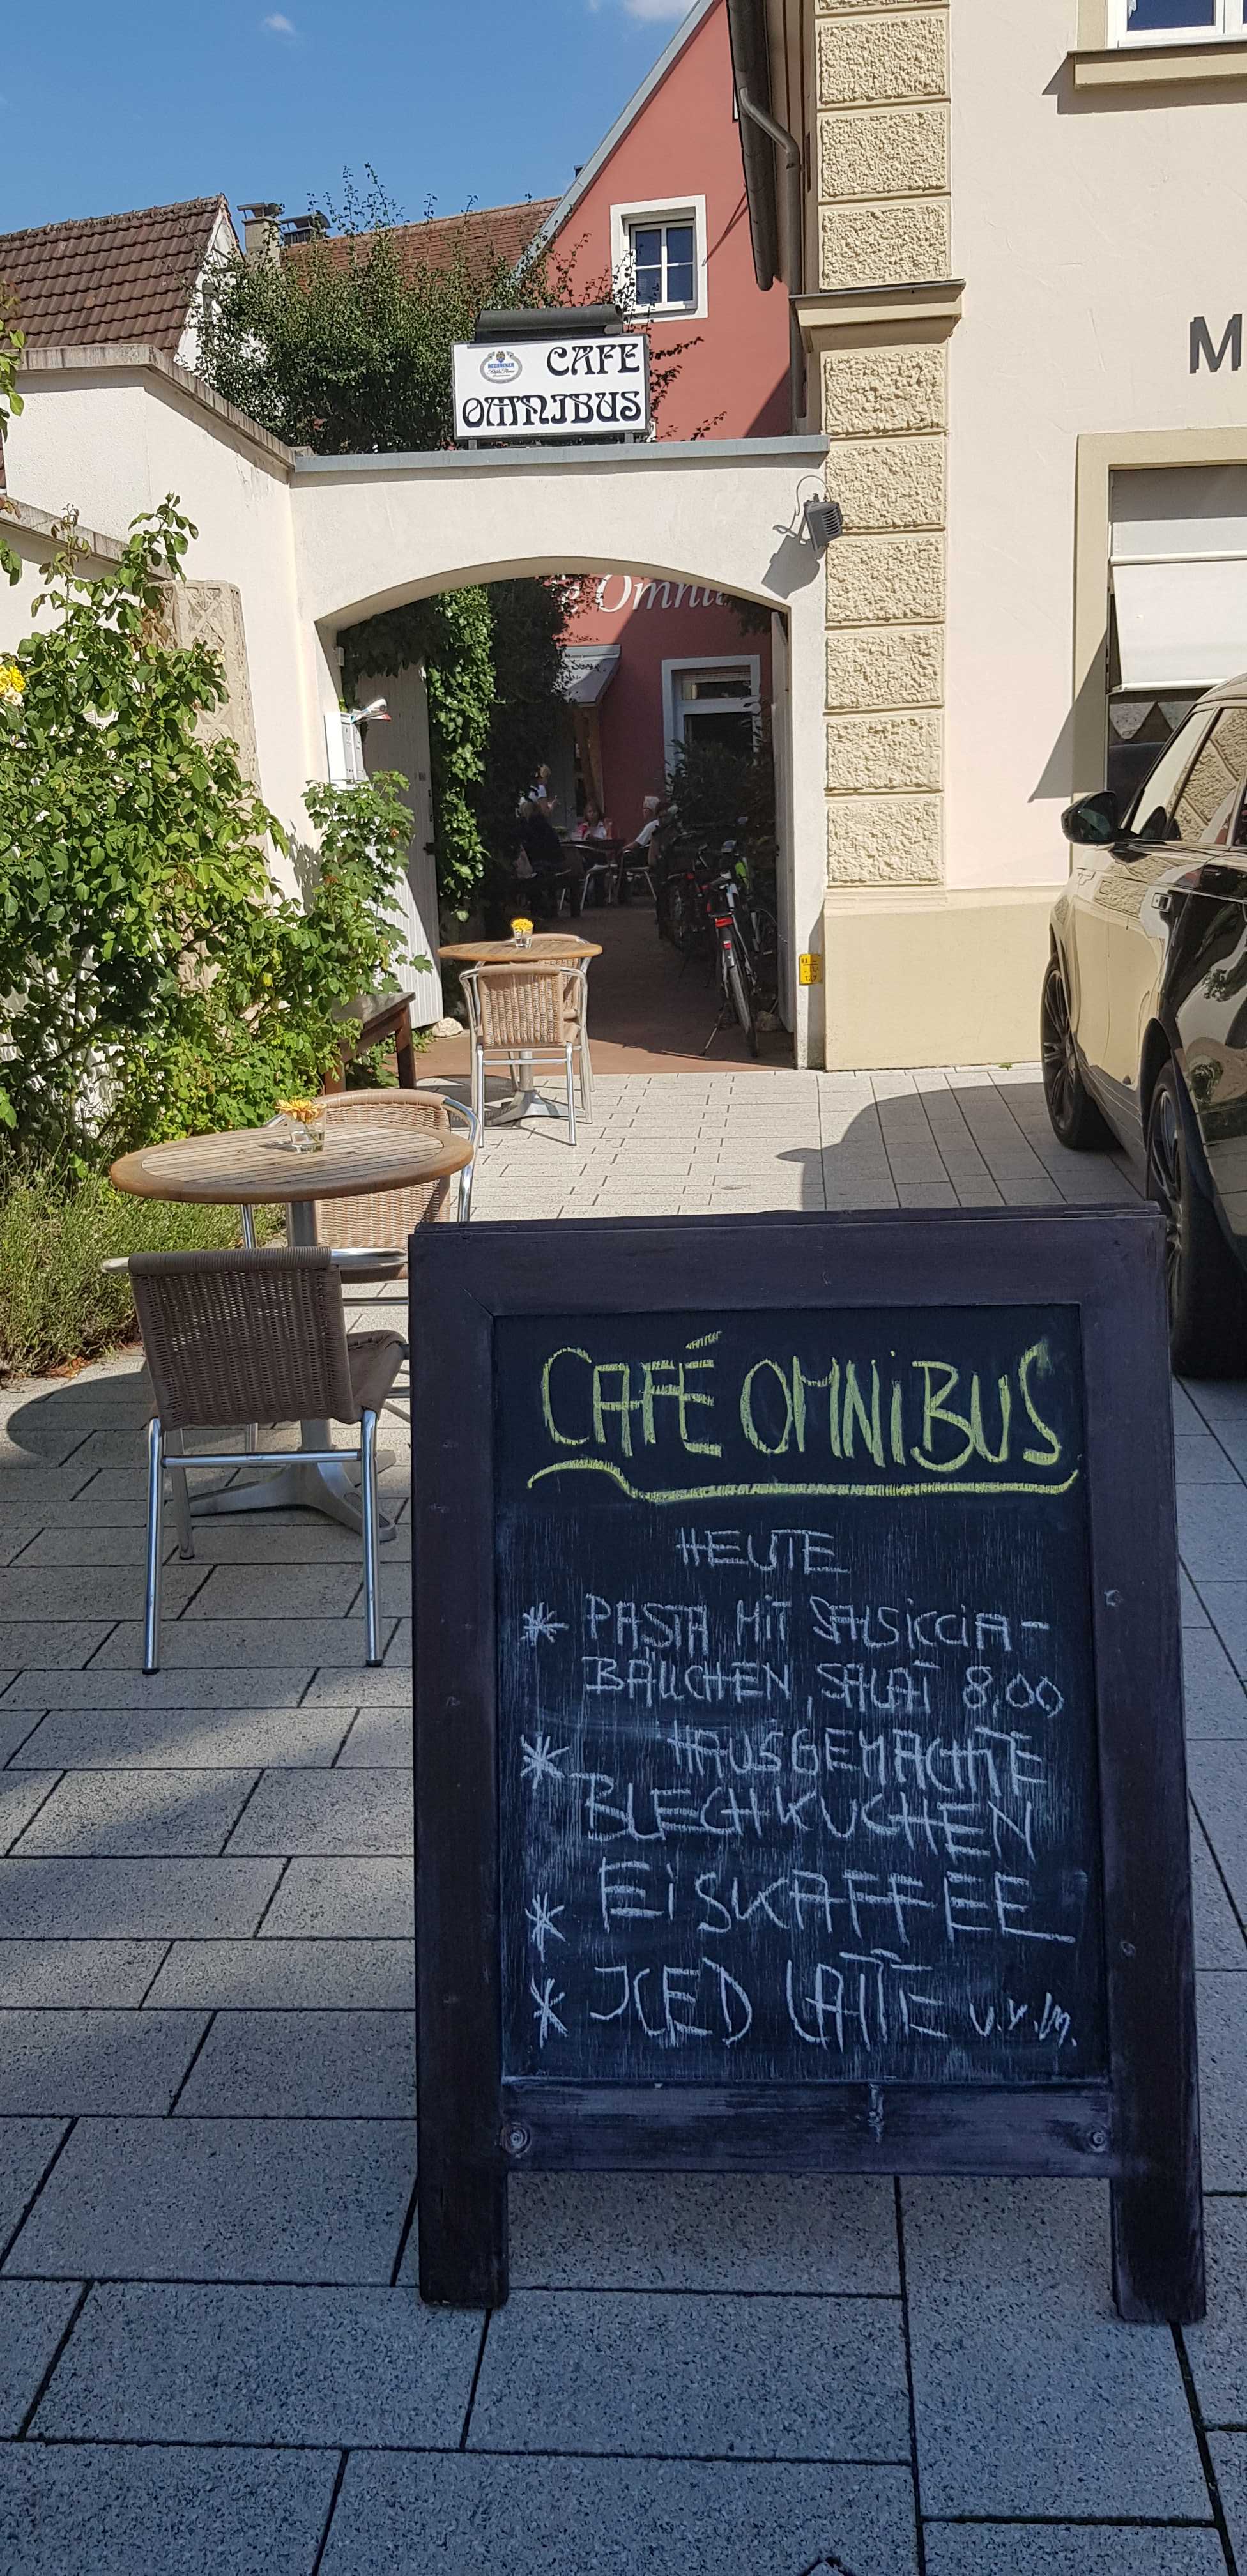 CAFE
OMNIBUS
Omni
M
CAFÉ OMNiBUS
HEUTE
* PASTA MiT SALSiCCiA-
BÄLLCHEN, SALAT 8,00
* HAUSGEMACHTE
BLECHKUCHEN
* EiSKAFFEE
* ICED LATTE u.v.m.